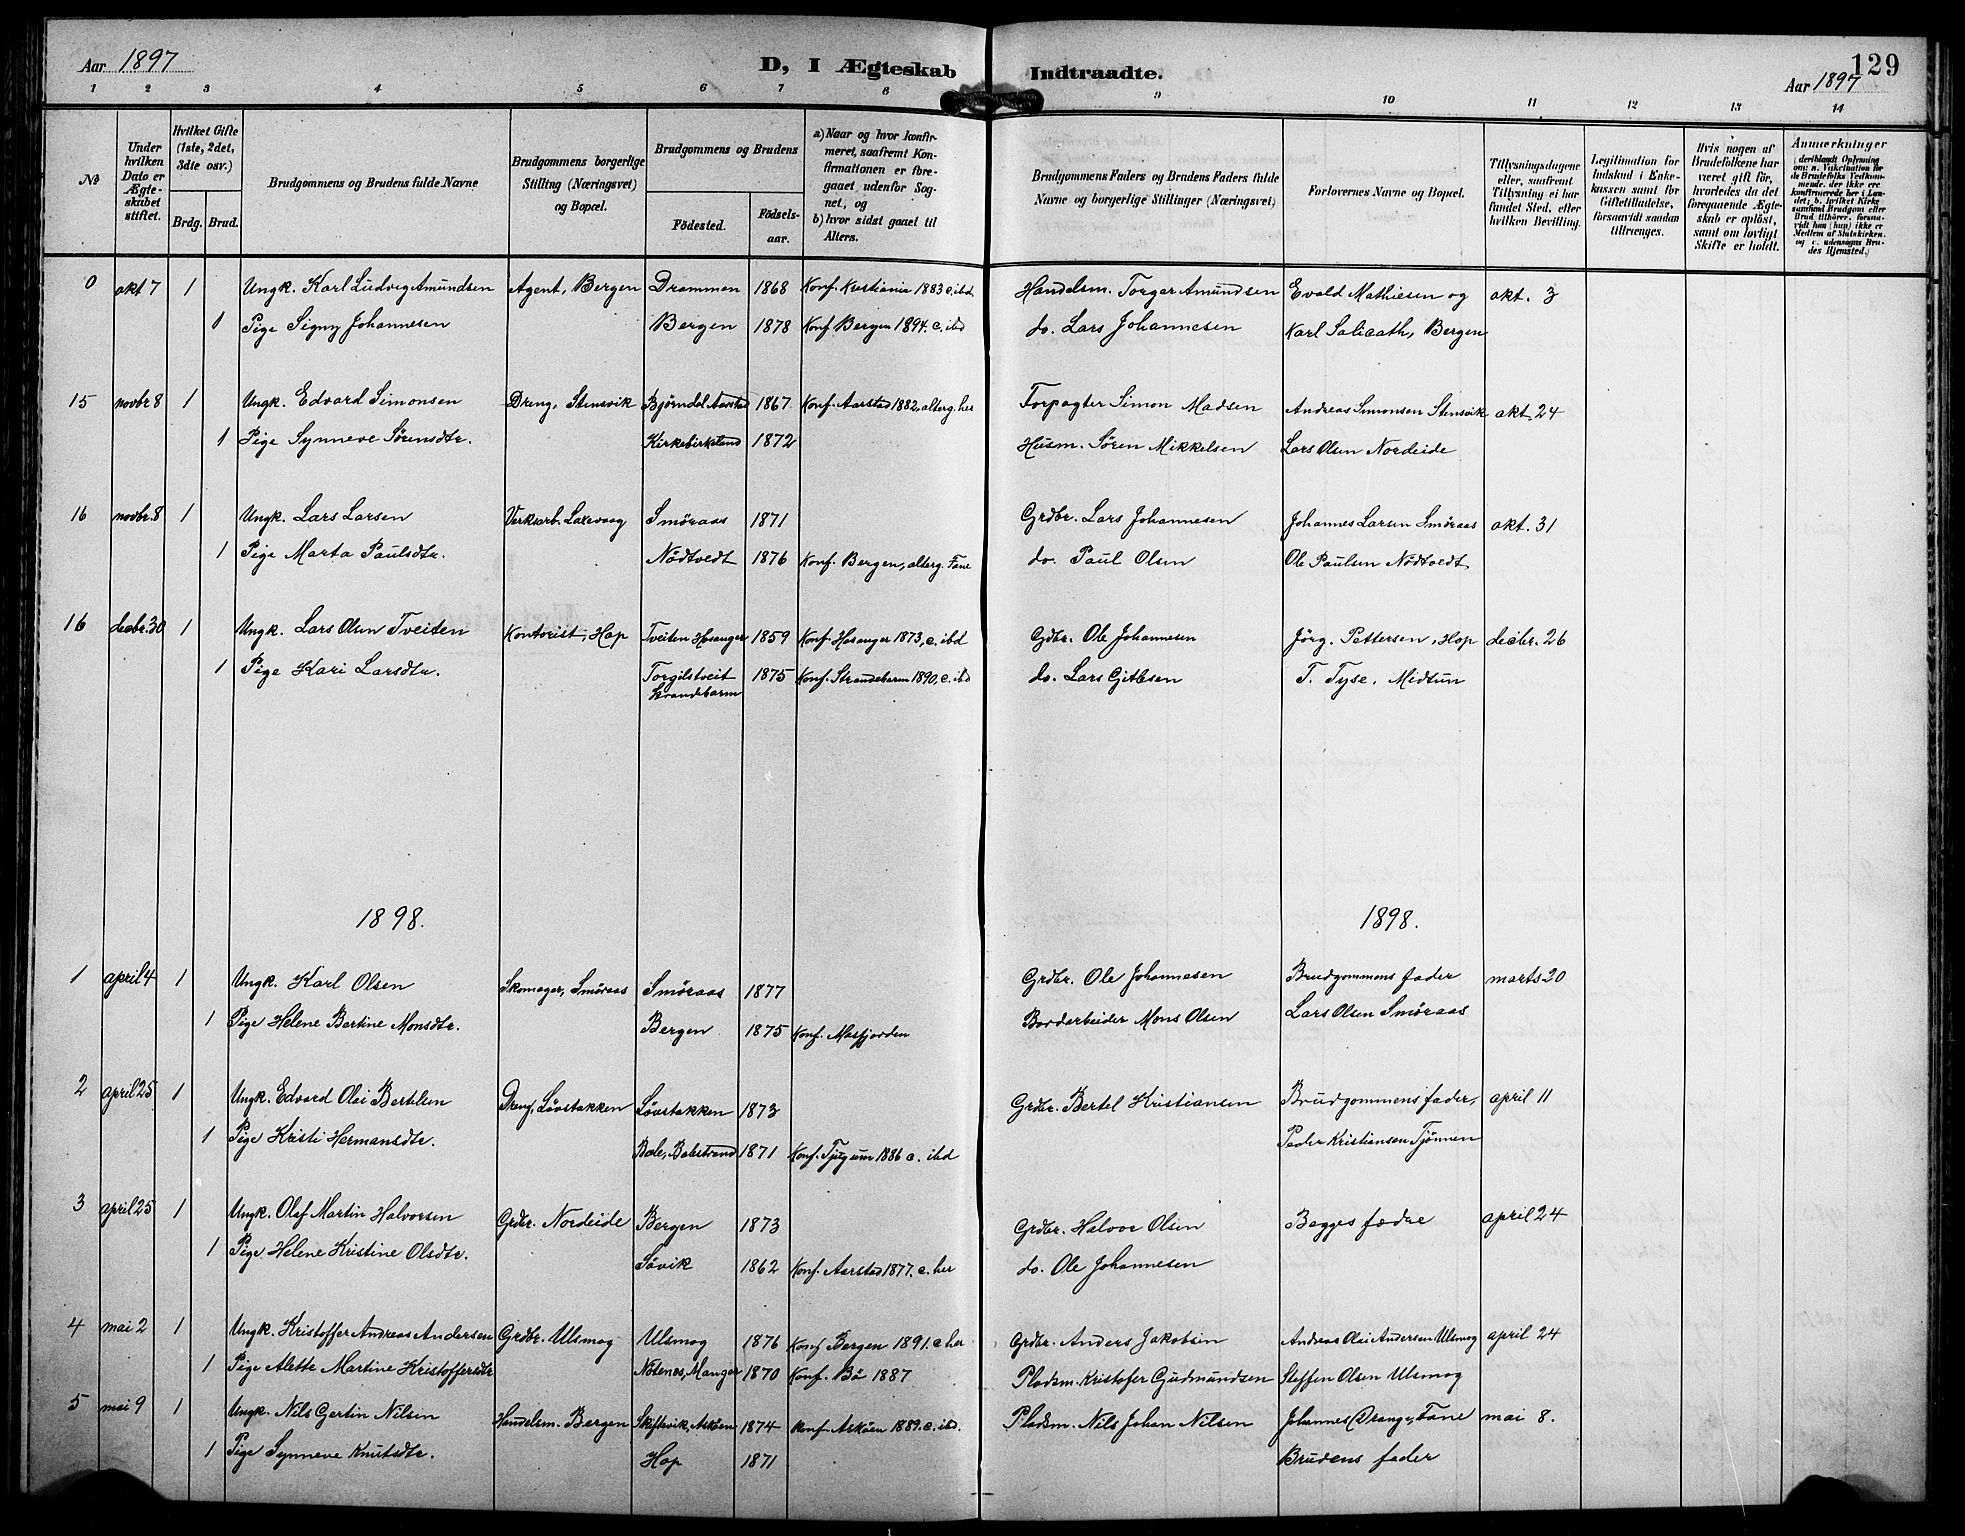 Aar 1897
D, I Ægteskab Indtraadte.
129
Aar 1897
1 2 3 4 5 6 7 8 9 10 11 12 13 14
№
Under hvilken Dato er Ægteskabet stiftet.
Hvilket Gifte (1ste, 2det, 3die osv.)
Brdg. Brud.
Brudgommens og Brudens fulde Navne
Brudgommens borgerlige Stilling (Næringsvei) og Bopæl.
Brudgommens og Brudens
Fødested. Fødselsaar.
a) Naar og hvor konfirmeret, saafremt Konfirmationen er foregaaet udenfor Sognet, og
b) hvor sidst gaaet til Alters.
Brudgommens Faders og Brudens Faders fulde Navne og borgerlige Stillinger (Næringsvei)
Forlovernes Navne og Bopæl.
Tillysningsdagene eller, saafremt Tillysning ei har fundet Sted, efter hvilken Bevilling.
Legitimation for Indskud i Enkekassen samt for Giftetilladelse, forsaavidt saadan tiltrænges.
Hvis nogen af Brudefolkene har været gift før, hvorledes da det foregaaende Ægteskab er opløst, samt om lovligt Skifte er holdt.
Anmærkninger
0 okt 7 1 Ungk. Karl Ludvig Amundsen Agent, Bergen Drammen 1868 Konf. Kristiania 1883 c. ibd. Handelsm. Torger Amundsen Evald Mathiesen og okt. 3
1 Pige Signy Johannesen Bergen 1878 Konf Bergen 1894. c. ibd do. Lars Johannesen Karl Bergen
15 novbr 8 1 Ungk. Edvard Simonsen Dreng, Stensvik Bjørndal Aarstad 1867 Konf. Aarstad 1882, alterg. her Forpagter Simon Madsen Andreas Simonsen Stensvik okt. 24
1 Pige Synneve Sørensdtr. Kirkebirkeland 1872 Husm. Søren Mikkelsen Lars Olsen Nordeide
16 novbr. 8 1 Ungk. Lars Larsen Verksarb. Laxevaag Smøraas 1871 Grdbr. Lars Johannesen Johannes Larsen Smøraas okt. 31
1 Pige Marta Paulsdtr. Nødtvedt 1876 Konf. Bergen, alterg. Fane do. Paul Olsen Ole Paulsen Nødtvedt
16 decbr. 30 1 Ungk. Lars Olsen Tveiten Kontorist, Hop Tveiten Hosanger 1859 Konf Hosanger 1873, c. ibd Gdbr. Ole Johannesen Jörg. Pettersen, Hop decbr. 26
1 Pige Kari Larsdtr. Torgilstveit 1875 Konf. Strandebarm 1890, c. ibd do. Lars Gitlesen T. Tyse, Midtun
Strandebarm
1898. 1898.
1 april 4 1 Ungk. Karl Olsen Skomager, Smøraas Smøraas 1877 Grdbr. Ole Johannesen Brudgommens fader marts 20
1 Pige Helene Bertine Monsdtr. Bergen 1875 Konf. Masfjorden Bordarbeider Mons Olsen Lars Olsen Smøraas
2 april 25 1 Ungk. Edvard Olai Bertelsen Dreng, Løvstakken Løvstakken 1873 Grdbr. Bertel Kristiansen Brudgommens fader, april 11
1 Pige Kristi Hermansdtr. Bale, Balestrand 1871 Konf. Tjugum 1886 c. ibd Peder Kristiansen Tjønnen
3 april 25 1 Ungk. Olaf Martin Halvorsen Grdbr. Nordeide Bergen 1873 Grdbr. Halvor Olsen Begges fædre april 24
1 Pige Helene Kristine Olsdtr. Søvik 1862 Konf. Aarstad 1877. c. her do. Ole Johannesen
4 mai 2 1 Ungk. Kristoffer Andreas Andersen Grdbr. Ulsmog Ulsmog 1876 Konf Bergen 1891. c her Grdbr. Anders Jakobsen Andreas Olai Andersen Ulsmog april 24
1 Pige Alette Martine Kristoffersdtr Nøtenes, Manger 1870 Konf. Bø 1887 Pladsm. Kristofer Gudmundsen Steffen Olsen Ulsmog
5 mai 9 1 Ungk. Nils Gertin Nilsen Handelsm. Bergen Skiftesvik, Askøen 1874 Konf Askøen 1889. c. ibd. Pladsm. Nils Johan Nilsen Johannes Drange, Fane mai 8.
1 Pige Synneve Knutsdtr. Hop 1871 Brudens fader